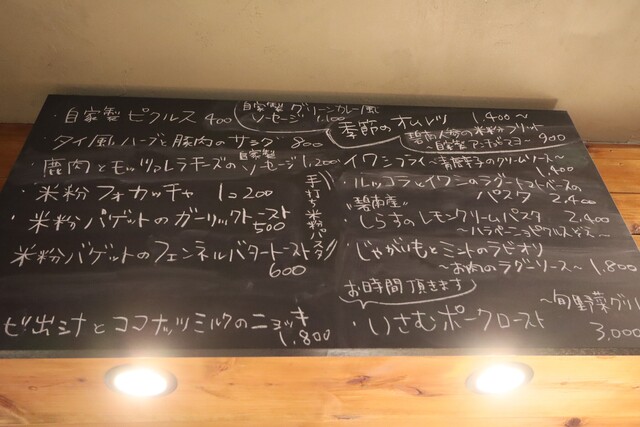 ・自家製ピクルス 400
自家製 グリーンカレー風
ソーセージ 1,100
・タイ風ハーブと豚肉のサラダ 800
・鹿肉とモッツァレラチーズの自家製ソーセージ 1,200
・米粉フォカッチャ 1コ200
・米粉バゲットのガーリックトースト
500
米粉バゲットのフェンネルバタートースト
600
エビ出シナとココナッツミルクのニョッキ
1,800
手打ち米粉パスタ
季節のオムレツ 1,400〜
碧南人参の米粉フリット
〜自家製アンチョビマヨ〜 900
イワシフライ〜青唐辛子のクリームソース〜
1,400
・ルッコラとイワシのラグートマトベースの
パスタ 2,400
碧南産
・しらすのレモンクリームパスタ 2,400
〜ハラペーニョピクルスどうぞ...
・じゃがいもとミントのラビオリ
〜お肉のラグーソース〜 1,800
お時間頂きます
・いさむポークロースト
〜旬野菜グリル
3,000